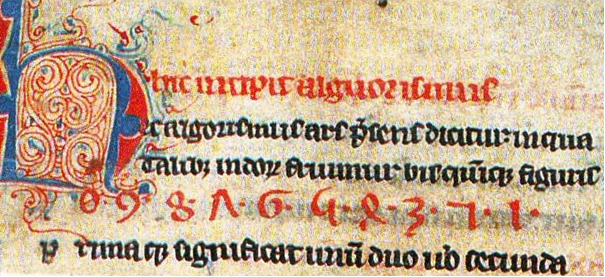 hinc incipit alguorismus
Hec algorismus ars p̄sens dicitur in qua
talibꝫ indoꝝ fruimur bis quinqꝫ figuris
0· 9· 8· 7· 6· 5· 4· 3· 2· 1·
prima qꝫ significat unū duo ů̊o secunda